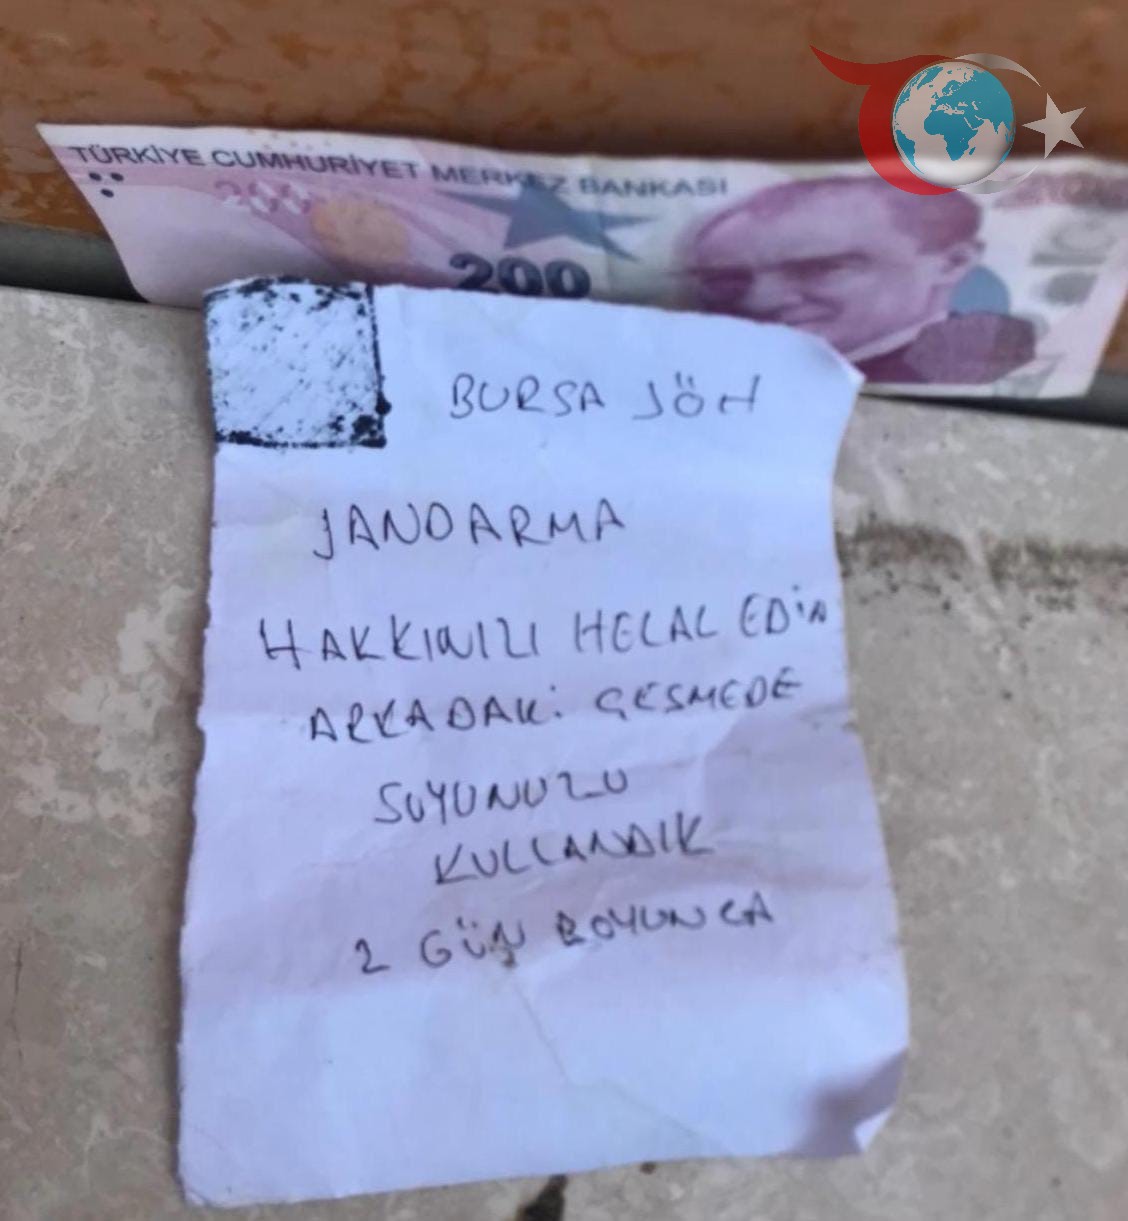 TÜRKİYE CUMHURİYET MERKEZ BANKASI
200
200
BURSA JÖH
JANDARMA
HAKKINIZI HELAL EDİN
ARKADAKİ ÇESMEDE
SUYUNUZU
KULLANDIK
2 GÜN BOYUNCA